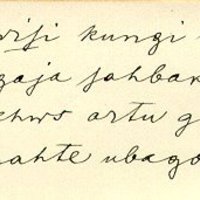 wiſi kungi
gaja ſahbak
ehws artu g
ahte ubago